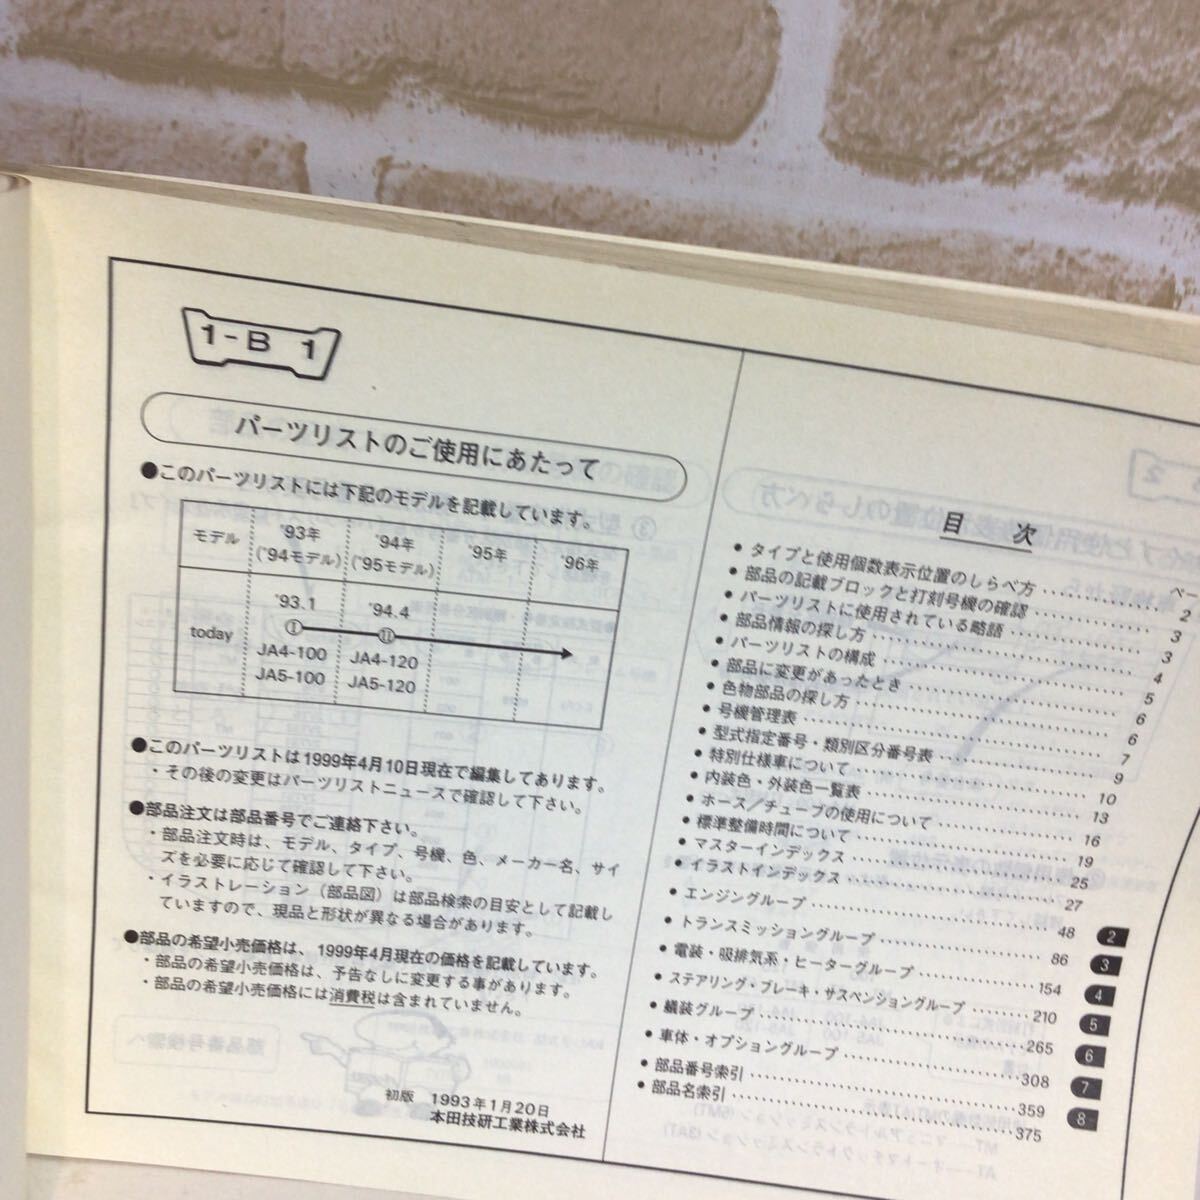 1-B 1
パーツリストのご使用にあたって
●このパーツリストには下記のモデルを記載しています。
モデル '93年 ('94モデル) '94年 ('95モデル) '95年 '96年
today
'93.1 '94.4
Ⅰ Ⅱ
JA4-100 JA4-120
JA5-100 JA5-120
●このパーツリストは1999年4月10日現在で編集してあります。
・その後の変更はパーツリストニュースで確認して下さい。
●部品注文は部品番号でご連絡下さい。
・部品注文時は、モデル、タイプ、号機、色、メーカー名、サイ
ズを必要に応じて確認して下さい。
・イラストレーション（部品図）は部品検索の目安として記載し
ていますので、現品と形状が異なる場合があります。
●部品の希望小売価格は、1999年4月現在の価格を記載しています。
・部品の希望小売価格は、予告なしに変更する事があります。
・部品の希望小売価格には消費税は含まれていません。
初版 1993年1月20日
本田技研工業株式会社
目 次
ペー
• タイプと使用個数表示位置のしらべ方 2
• 部品の記載ブロックと打刻号機の確認 3
• パーツリストに使用されている略語 3
• 部品情報の探し方 4
• パーツリストの構成 5
• 部品に変更があったとき 6
• 色物部品の探し方 6
• 号機管理表 7
• 型式指定番号・類別区分番号表 9
• 特別仕様車について 10
• 内装色・外装色一覧表 13
• ホース／チューブの使用について 16
• 標準整備時間について 19
• マスターインデックス 25
• イラストインデックス 27
• エンジングループ 48 2
• トランスミッショングループ 86 3
• 電装・吸排気系・ヒーターグループ 154 4
• ステアリング・ブレーキ・サスペンショングループ 210 5
• 艤装グループ 265 6
• 車体・オプショングループ 308 7
• 部品番号索引 359 8
• 部品名索引 375